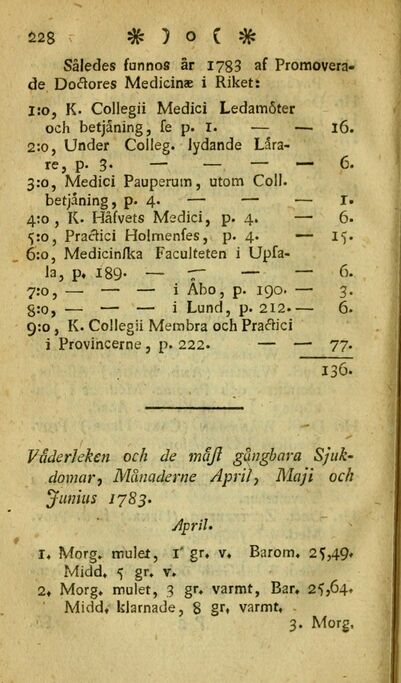 228 ❉ ) o ( ❉
Således funnos år 1783 af Promovera-
de Doctores Medicinæ i Riket:
1:o, K. Collegii Medici Ledamöter
och betjåning, ſe p. 1. — — 16.
2:o, Under Colleg. lydande Låra-
re, p. 3. — — — — 6.
3:o, Medici Pauperum, utom Coll.
betjåning, p. 4. — — — 1.
4:o, K. Håfvets Medici, p. 4. — 6.
5:o, Practici Holmenſes, p. 4. — 15.
6:o, Medicinſka Faculteten i Upſa-
la, p. 189. — — — 6.
7:o, — — — i Åbo, p. 190. — 3.
8:o, — — — i Lund, p. 212. — 6.
9:o, K. Collegii Membra och Practici
i Provincerne, p. 222. — — 77.
136.
Våderleken och de måſt gångbara Sjuk-
domar, Månaderne April, Maji och
Junius 1783.
April.
1. Morg. mulet, 1 gr. v. Barom. 25,49.
Midd. 5 gr. v.
2. Morg. mulet, 3 gr. varmt, Bar. 25,64.
Midd. klarnade, 8 gr. varmt.
3. Morg.